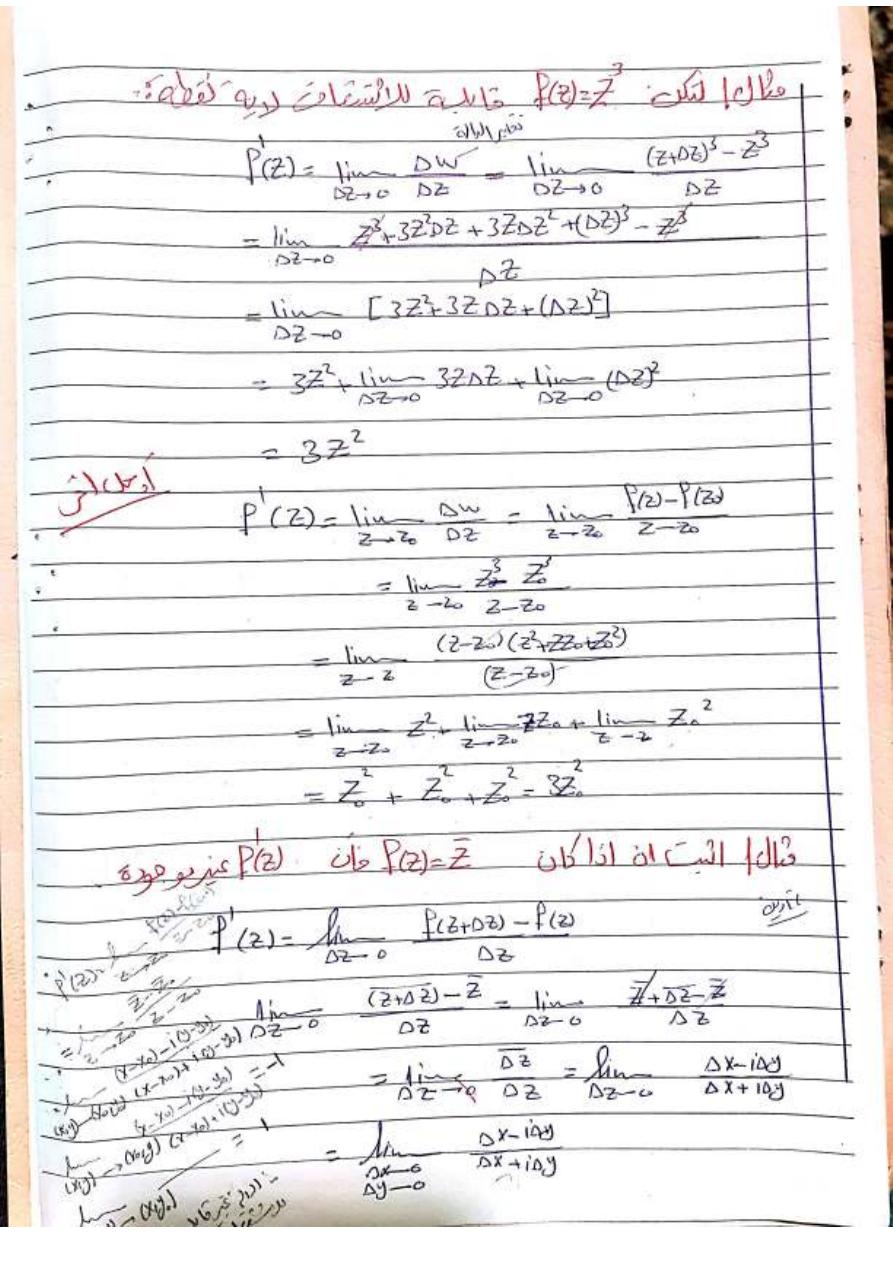 مثال| لتكن f(z)=z³ قابلة للاشتقاق لاية نقطة:
تغير الدالة
f'(z) = lim Δz→0 Δw/Δz = lim Δz→0 ((z+Δz)³ - z³)/Δz
= lim Δz→0 (z³+3z²Δz+3zΔz²+(Δz)³-z³)/Δz
= lim Δz→0 [3z²+3zΔz+(Δz)²]
= 3z²+lim Δz→0 3zΔz + lim Δz→0 (Δz)²
= 3z²
f'(z) = lim z→z₀ Δw/Δz = lim z→z₀ (f(z)-f(z₀))/(z-z₀)
= lim z→z₀ (z³ z₀³)/(z-z₀)
= lim z→z ((z-z₀)(z²+zz₀+z₀²))/(z-z₀)
= lim z→z₀ z² + lim z→z₀ zz₀ + lim z→z z₀²
= z₀² + z₀² + z₀² = 3z₀²
مثال| اثبت ان اذا كان f(z)=z̅ فان f'(z) غير موجودة.
f'(z) = lim Δz→0 (f(z+Δz)-f(z))/Δz
lim Δz→0 ((z̅+Δz̅)-z̅)/Δz = lim Δz→0 (z̅+Δz̅-z̅)/Δz
= lim Δz→0 Δz̅/Δz = lim Δz→0 (Δx-iΔy)/(Δx+iΔy)
= lim Δx→0 Δy→0 (Δx-iΔy)/(Δx+iΔy)
f'(z)= lim z→z₀ (f(z)-f(z₀))/(z-z₀)
= lim z→z₀ (z̅-z̅₀)/(z-z₀)
lim (x,y)→(x₀,y) ((x-x₀)-i(y-y₀))/((x-x₀)+i(y-y₀)) = -1
lim (x,y)→(x₀,y) ((x-x₀)-i(y-y₀))/((x-x₀)+i(y-y₀)) = 1